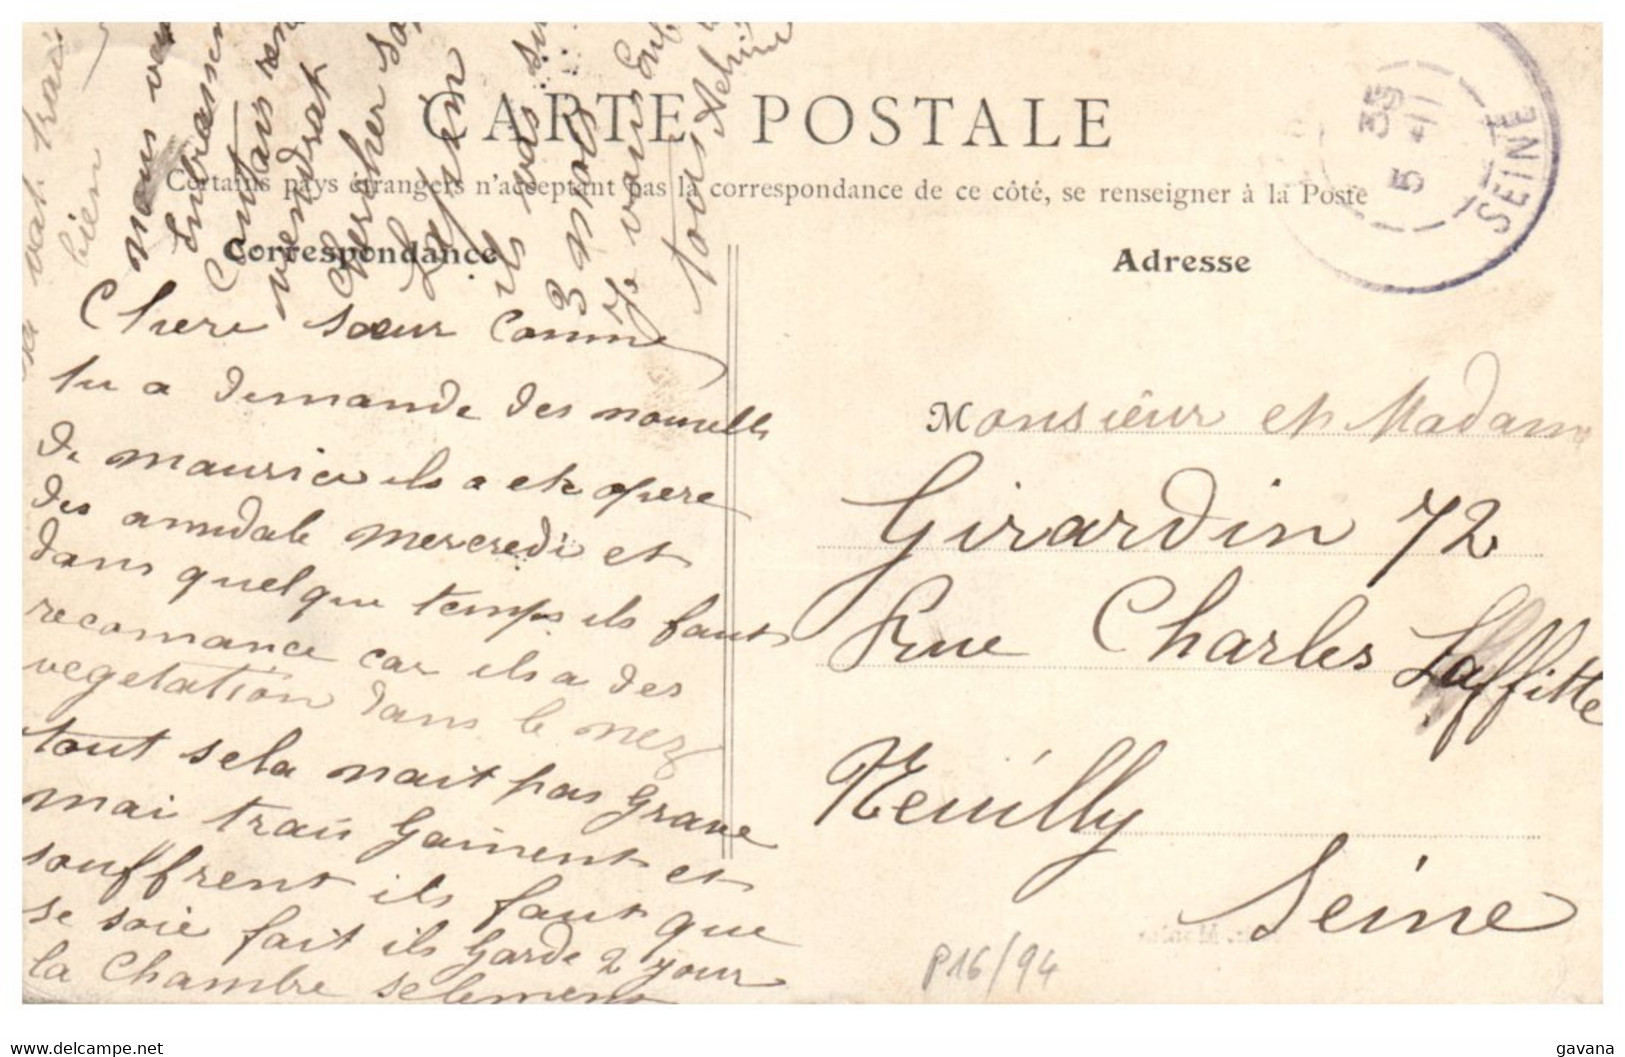 CARTE POSTALE
Certains pays étrangers n'acceptant pas la correspondance de ce côté, se renseigner à la Poste
Correspondance
Adresse
Chere sœur Comme
tu a demande des nouvelle
de maurice ils a ete opere
des amidale mercredi et
dans quelque temps ils faut
recomance car ils a des
vegetation dans le nez
tout sela nait pas grave
mai trais gainent et
souffrent ils faut que
se soie fait ils garde 2 jour
la Chambre selement
sa vat trais
bien
nous vous
Embrassen
vendrat
chercher
ils vas sur
3 mois
Je vous
tous
Monsieur et Madame
Girardin 72
Rue Charles Laffitte
Neuilly
Seine
35
5 - 11
SEINE
P16/94
www.delcampe.net
gavana